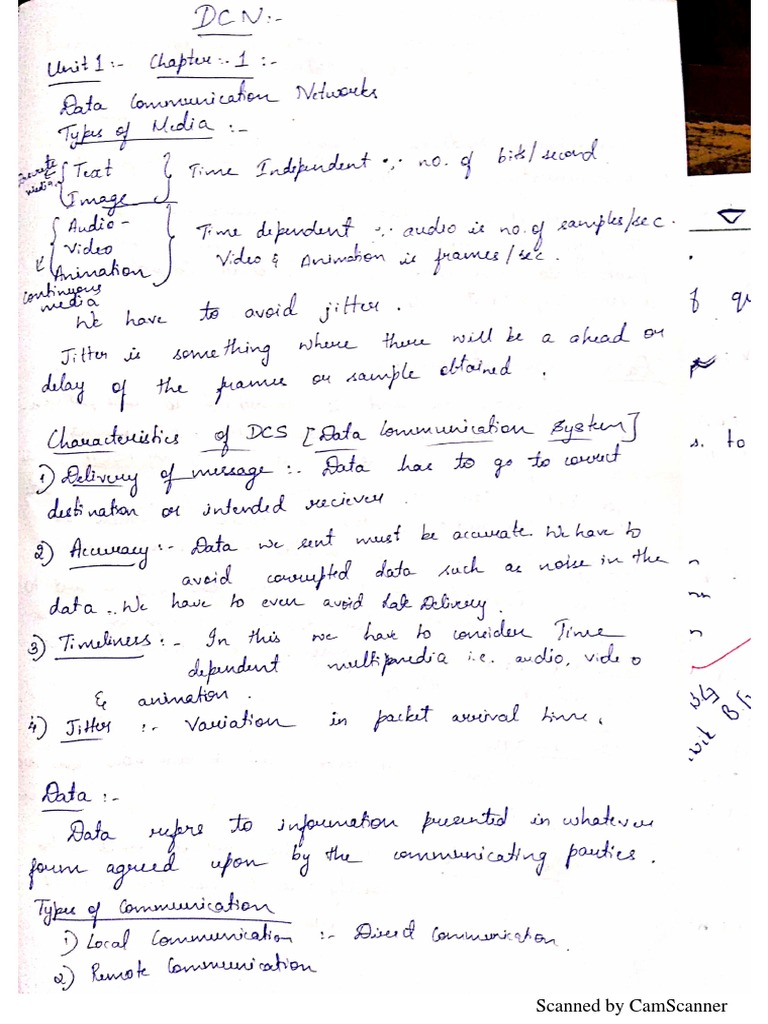 DCN:-
Unit 1:- Chapter:- 1:-
Data Communication Networks
Types of Media :-
Discrete media
Text
Image
Time Independent ∵ no. of bits/second
Audio -
Video
Animation
Time dependent ∵ audio is no. of samples/sec.
Video & Animation is frames/sec.
continuous
media
We have to avoid jitter.
Jitter is something where there will be a ahead or
delay of the frames or sample obtained.
Characteristics of DCS [Data Communication System]
1) Delivery of message :- Data has to go to correct
destination or intended reciever.
2) Accuracy :- Data we sent must be accurate. We have to
avoid corrupted data such as noise in the
data. We have to even avoid late Delivery.
3) Timeliness :- In this we have to consider Time
dependent multimedia i.e. audio, video
& animation.
4) Jitter :- Variation in packet arrival time.
Data :-
Data refers to information presented in whatever
form agreed upon by the communicating parties.
Types of Communication
1) Local Communication :- Direct Communication.
2) Remote Communication
s. to
Scanned by CamScanner